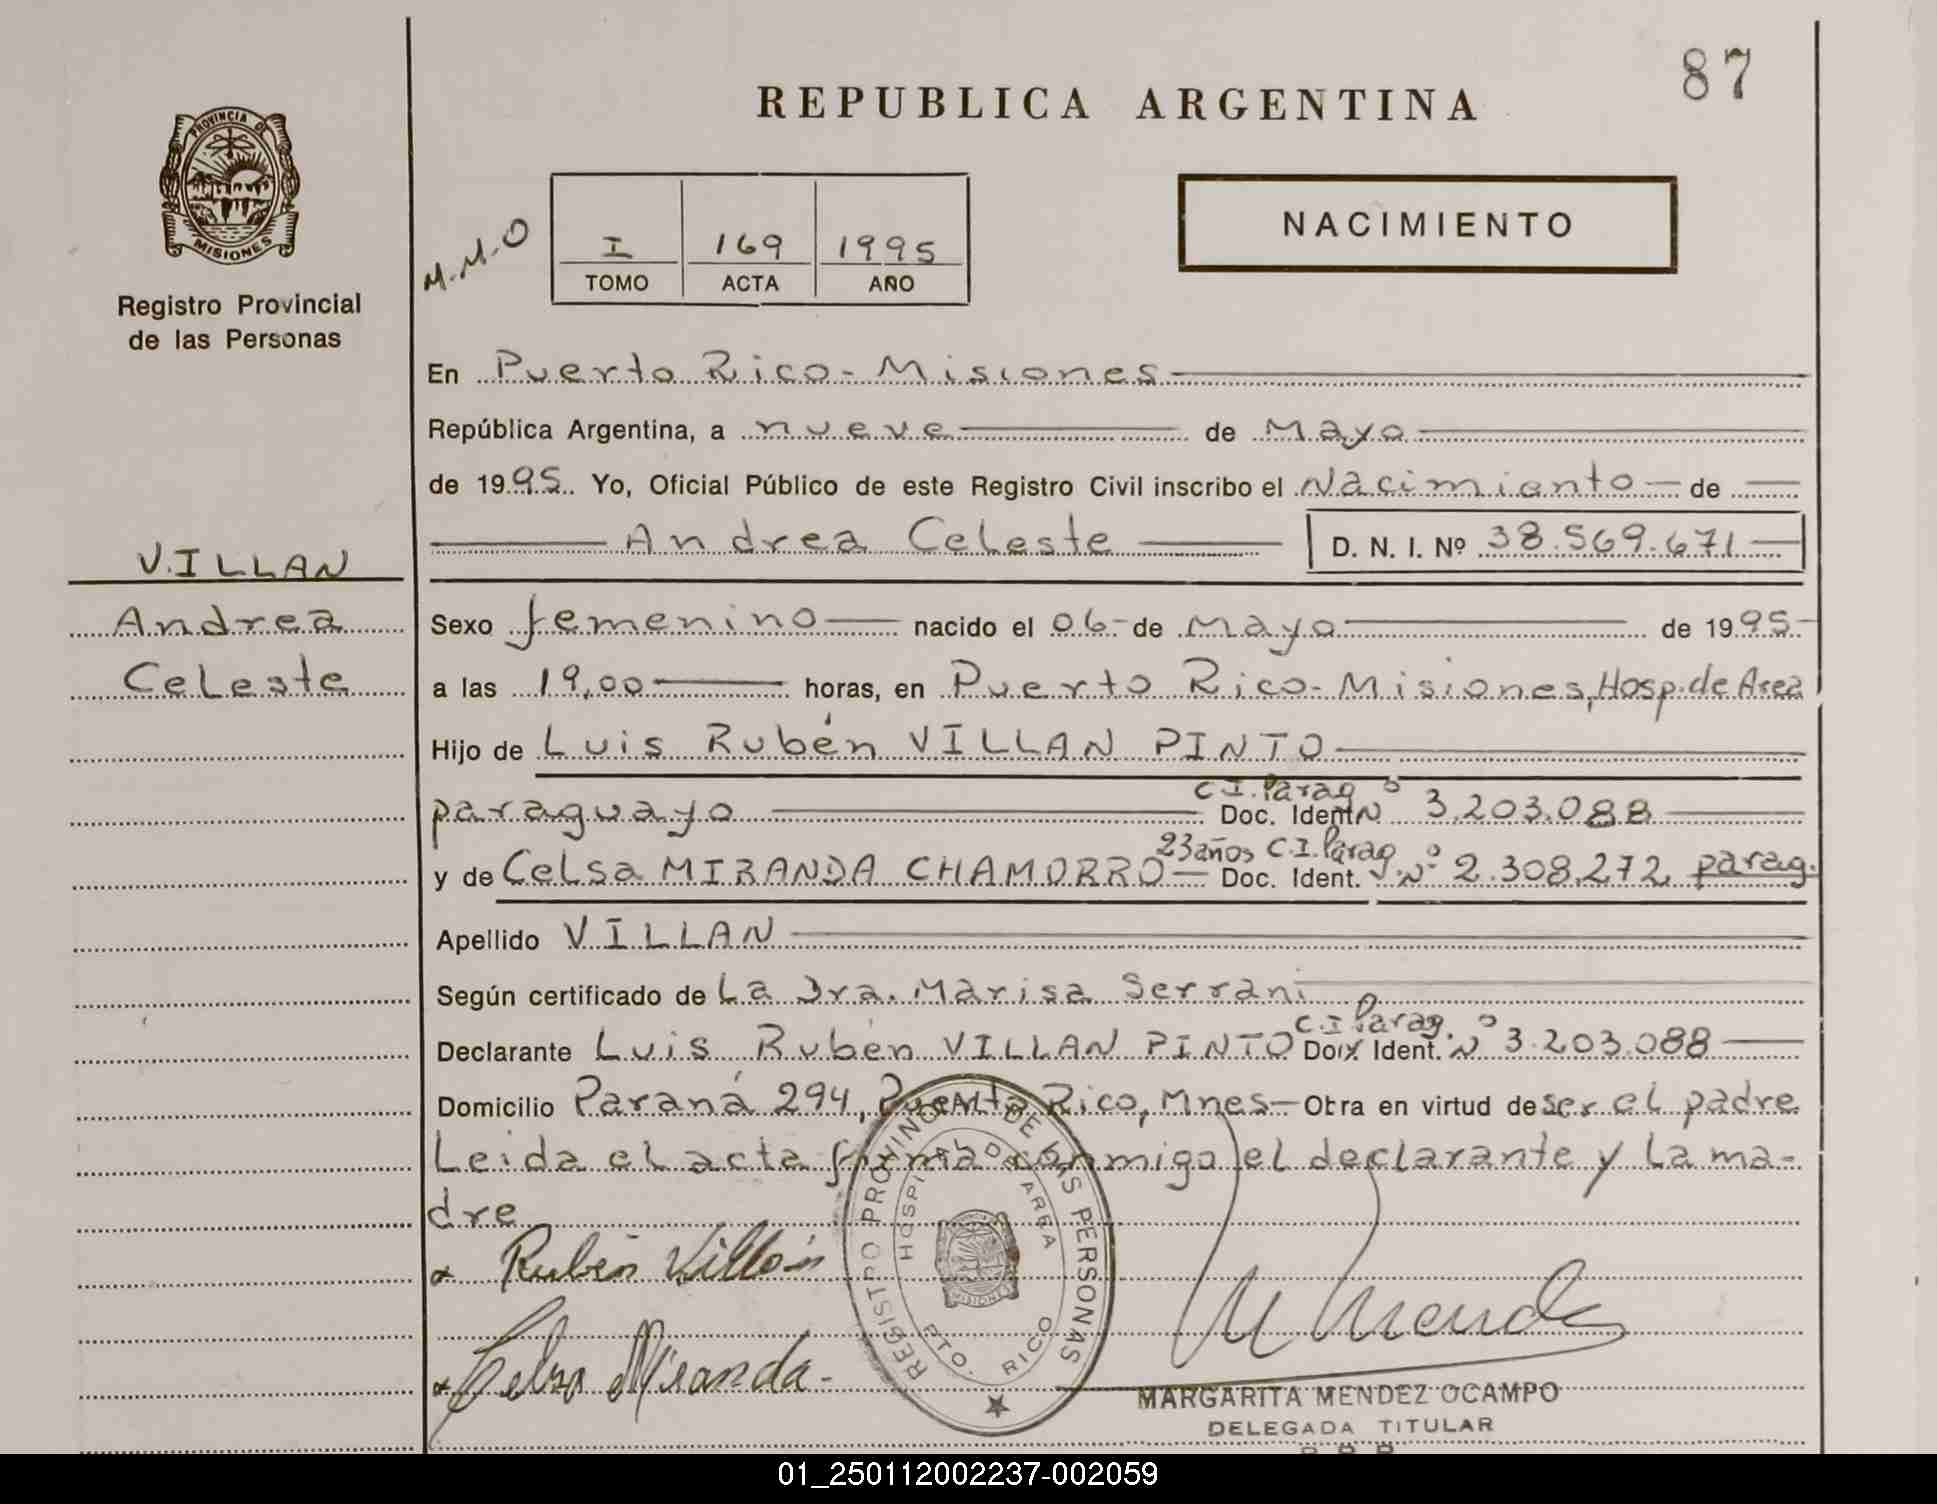 87
REPUBLICA ARGENTINA
PROVINCIA DE
MISIONES
Registro Provincial
de las Personas
M.M.O
I 169 1995
TOMO ACTA AÑO
NACIMIENTO
En Puerto Rico - Misiones
República Argentina, a nueve de Mayo
de 1995. Yo, Oficial Público de este Registro Civil inscribo el Nacimiento de
Andrea Celeste D. N. I. Nº 38.569.671
VILLAN
Andrea
Celeste
Sexo femenino nacido el 06 de Mayo de 1995
a las 19,00 horas, en Puerto Rico - Misiones, Hosp. de Area
Hijo de Luis Rubén VILLAN PINTO
C.I. Parag
paraguayo Doc. Ident Nº 3.203.088
23 años C.I. Parag
y de Celsa MIRANDA CHAMORRO Doc. Ident. Nº 2.308.272 parag.
Apellido VILLAN
Según certificado de La Dra. Marisa Serrani
C.I. Parag.
Declarante Luis Rubén VILLAN PINTO Doc. Ident. Nº 3.203.088
Domicilio Paraná 294, Puerto Rico, Mnes - Obra en virtud de ser el padre
Leida el acta firma conmigo el declarante y la ma-
dre
Rubén Villán
Celsa Miranda
REGISTRO PROVINCIAL DE LAS PERSONAS
HOSPITAL DE AREA
PTO. RICO
MISIONES
M Mende
MARGARITA MENDEZ OCAMPO
DELEGADA TITULAR
01_250112002237-002059